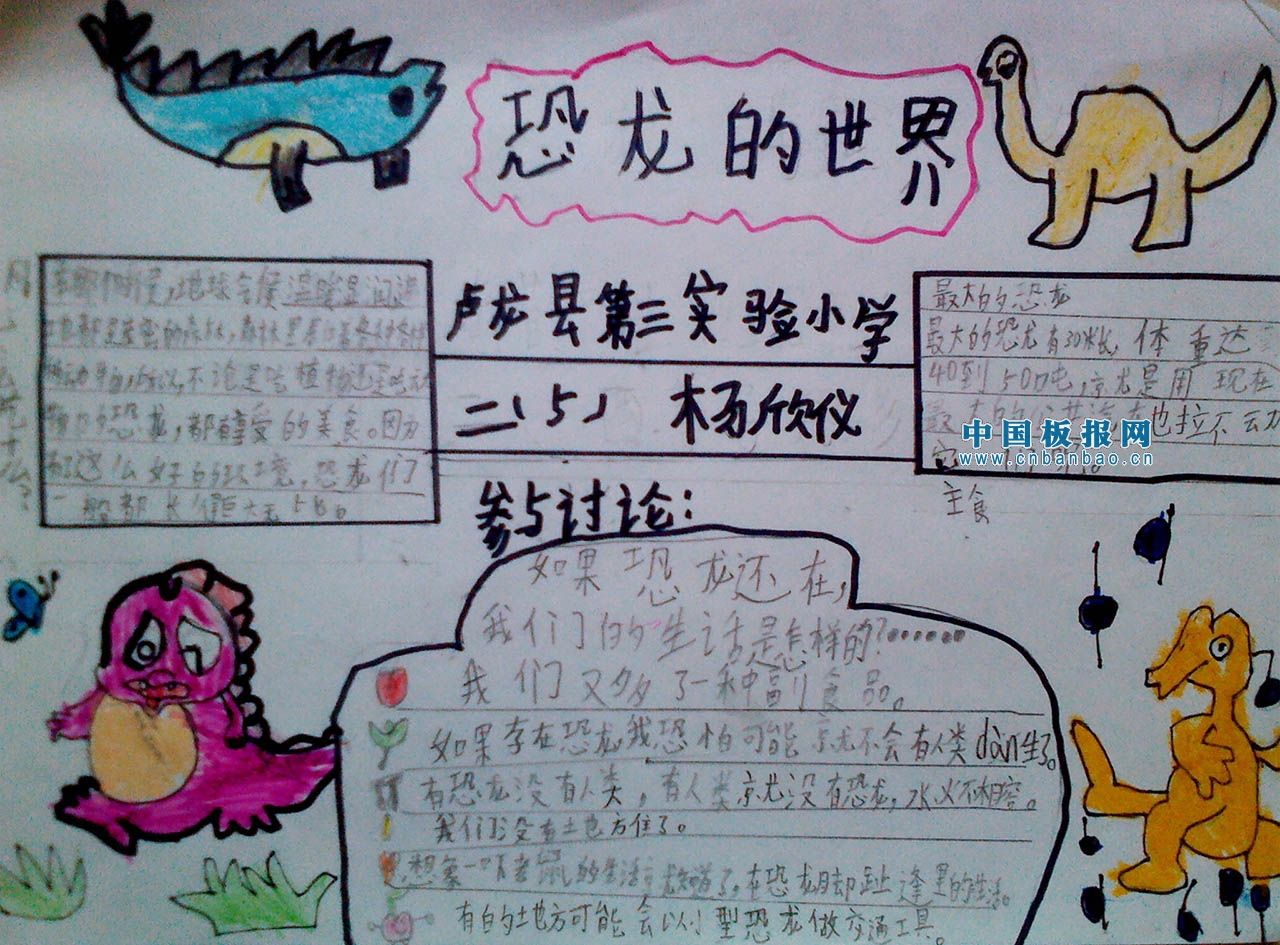 恐龙的世界
卢龙县第三实验小学
二(5) 杨欣仪
地球气候温暖湿润
都是茂密的森林,森林里
物,所以不论是吃植物还是吃动
物的恐龙,都享受的美食。因为
有这么好的环境,恐龙们
一般都长
最大的恐龙
最大的恐龙有30米长,体重达
40到50吨,就是用现在
最大的公共汽车也拉不动
它
主食
中国板报网
www.cnbanbao.cn
参与讨论:
如果恐龙还在,
我们的生活是怎样的?......
我们又多了一种副食品。
如果存在恐龙我恐怕可能就不会有人类dàn生了。
有恐龙没有人类,有人类就没有恐龙,水火不相容。
我们没有土也方住了。
想象一下老鼠的生活就知道了,在恐龙脚趾逢里的生活。
有的地方可能会以小型恐龙做交通工具。